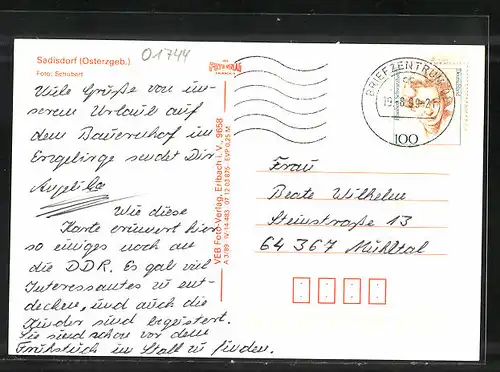 Sadisdorf (Osterzgeb.)
Foto: Schubert
01744
Viele Grüße von un-
serem Urlaub auf
dem Bauernhof im
Erzgebirge sendet Dir
Angelika
Wie diese
Karte erinnert hier
so einiges noch an
die DDR. Es gab viel
Interessantes zu ent-
decken, und auch die
Kinder sind begeistert.
Sie sind schon vor dem
Frühstück im Stall zu finden.
VEB Foto-Verlag, Erlbach i. V., 9658
A 3/89 · IV-14-483 07 12 03 875 EVP 0,25 M
BRIEFZENTRUM
100
Frau
Beate Wilhelm
Steinstraße 13
64 367 Mühltal